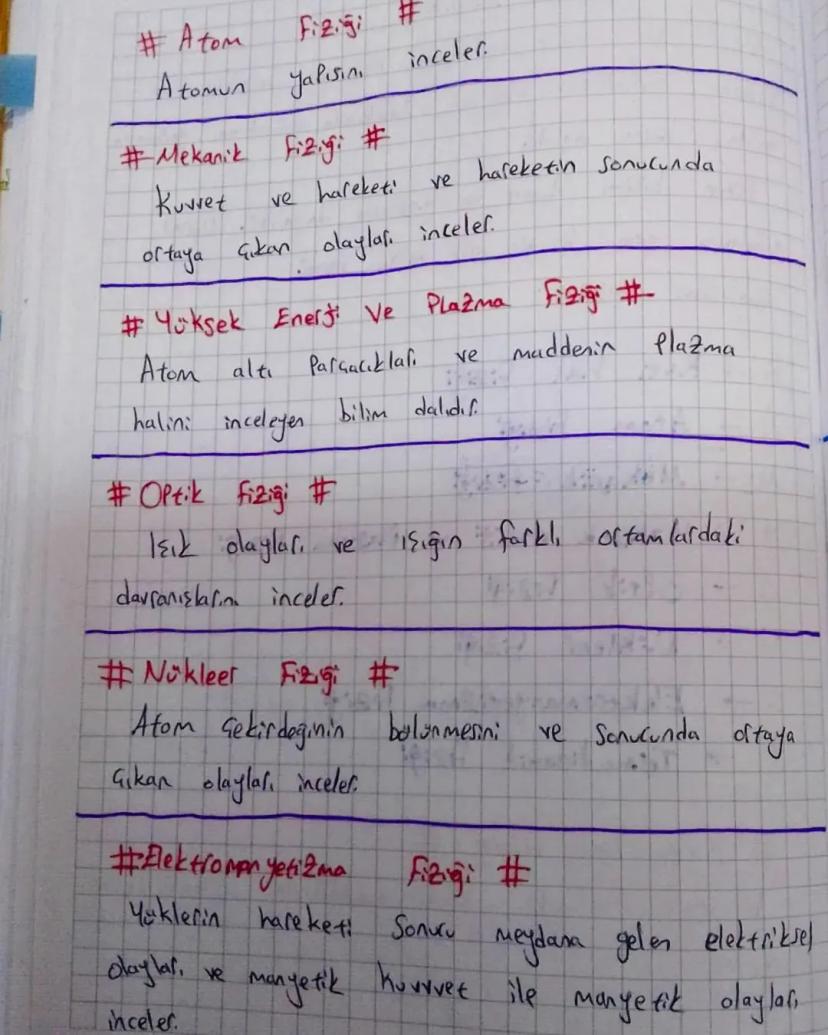 # Atom Fiziği #
Atomun yapısını inceler.
# Mekanik Fiziği #
Kuvvet ve hareketi ve hareketin sonucunda
ortaya çıkan olayları inceler.
# Yüksek Enerji Ve Plazma Fiziği #
Atom altı Parçacıkları ve maddenin Plazma
halini inceleyen bilim dalıdır.
# Optik Fiziği #
Işık olayları ve ışığın farklı ortamlardaki
davranışlarını inceler.
# Nükleer Fiziği #
Atom çekirdeğinin bölünmesini ve sonucunda ortaya
çıkan olayları inceler.
# Elektromanyetizma Fiziği #
Yüklerin hareketi Sonucu meydana gelen elektriksel
olayları ve manyetik kuvvet ile manyetik olayları
inceler.